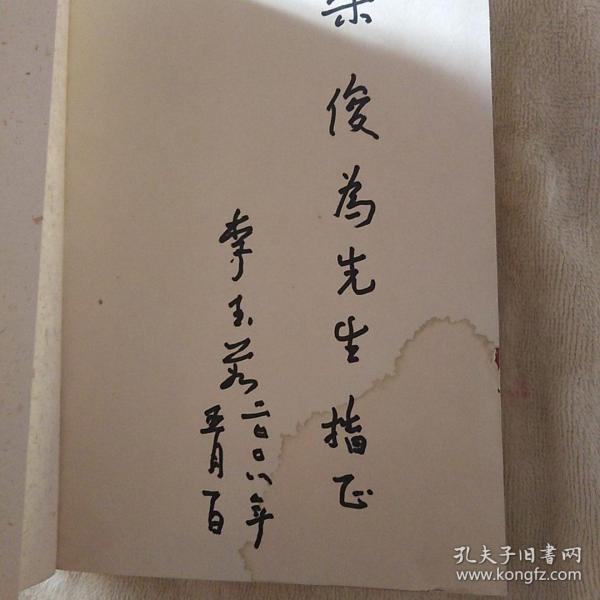 俊為先生指正
李玉茗
二〇〇八年
五月一日
孔夫子旧书网
www.kongfz.com